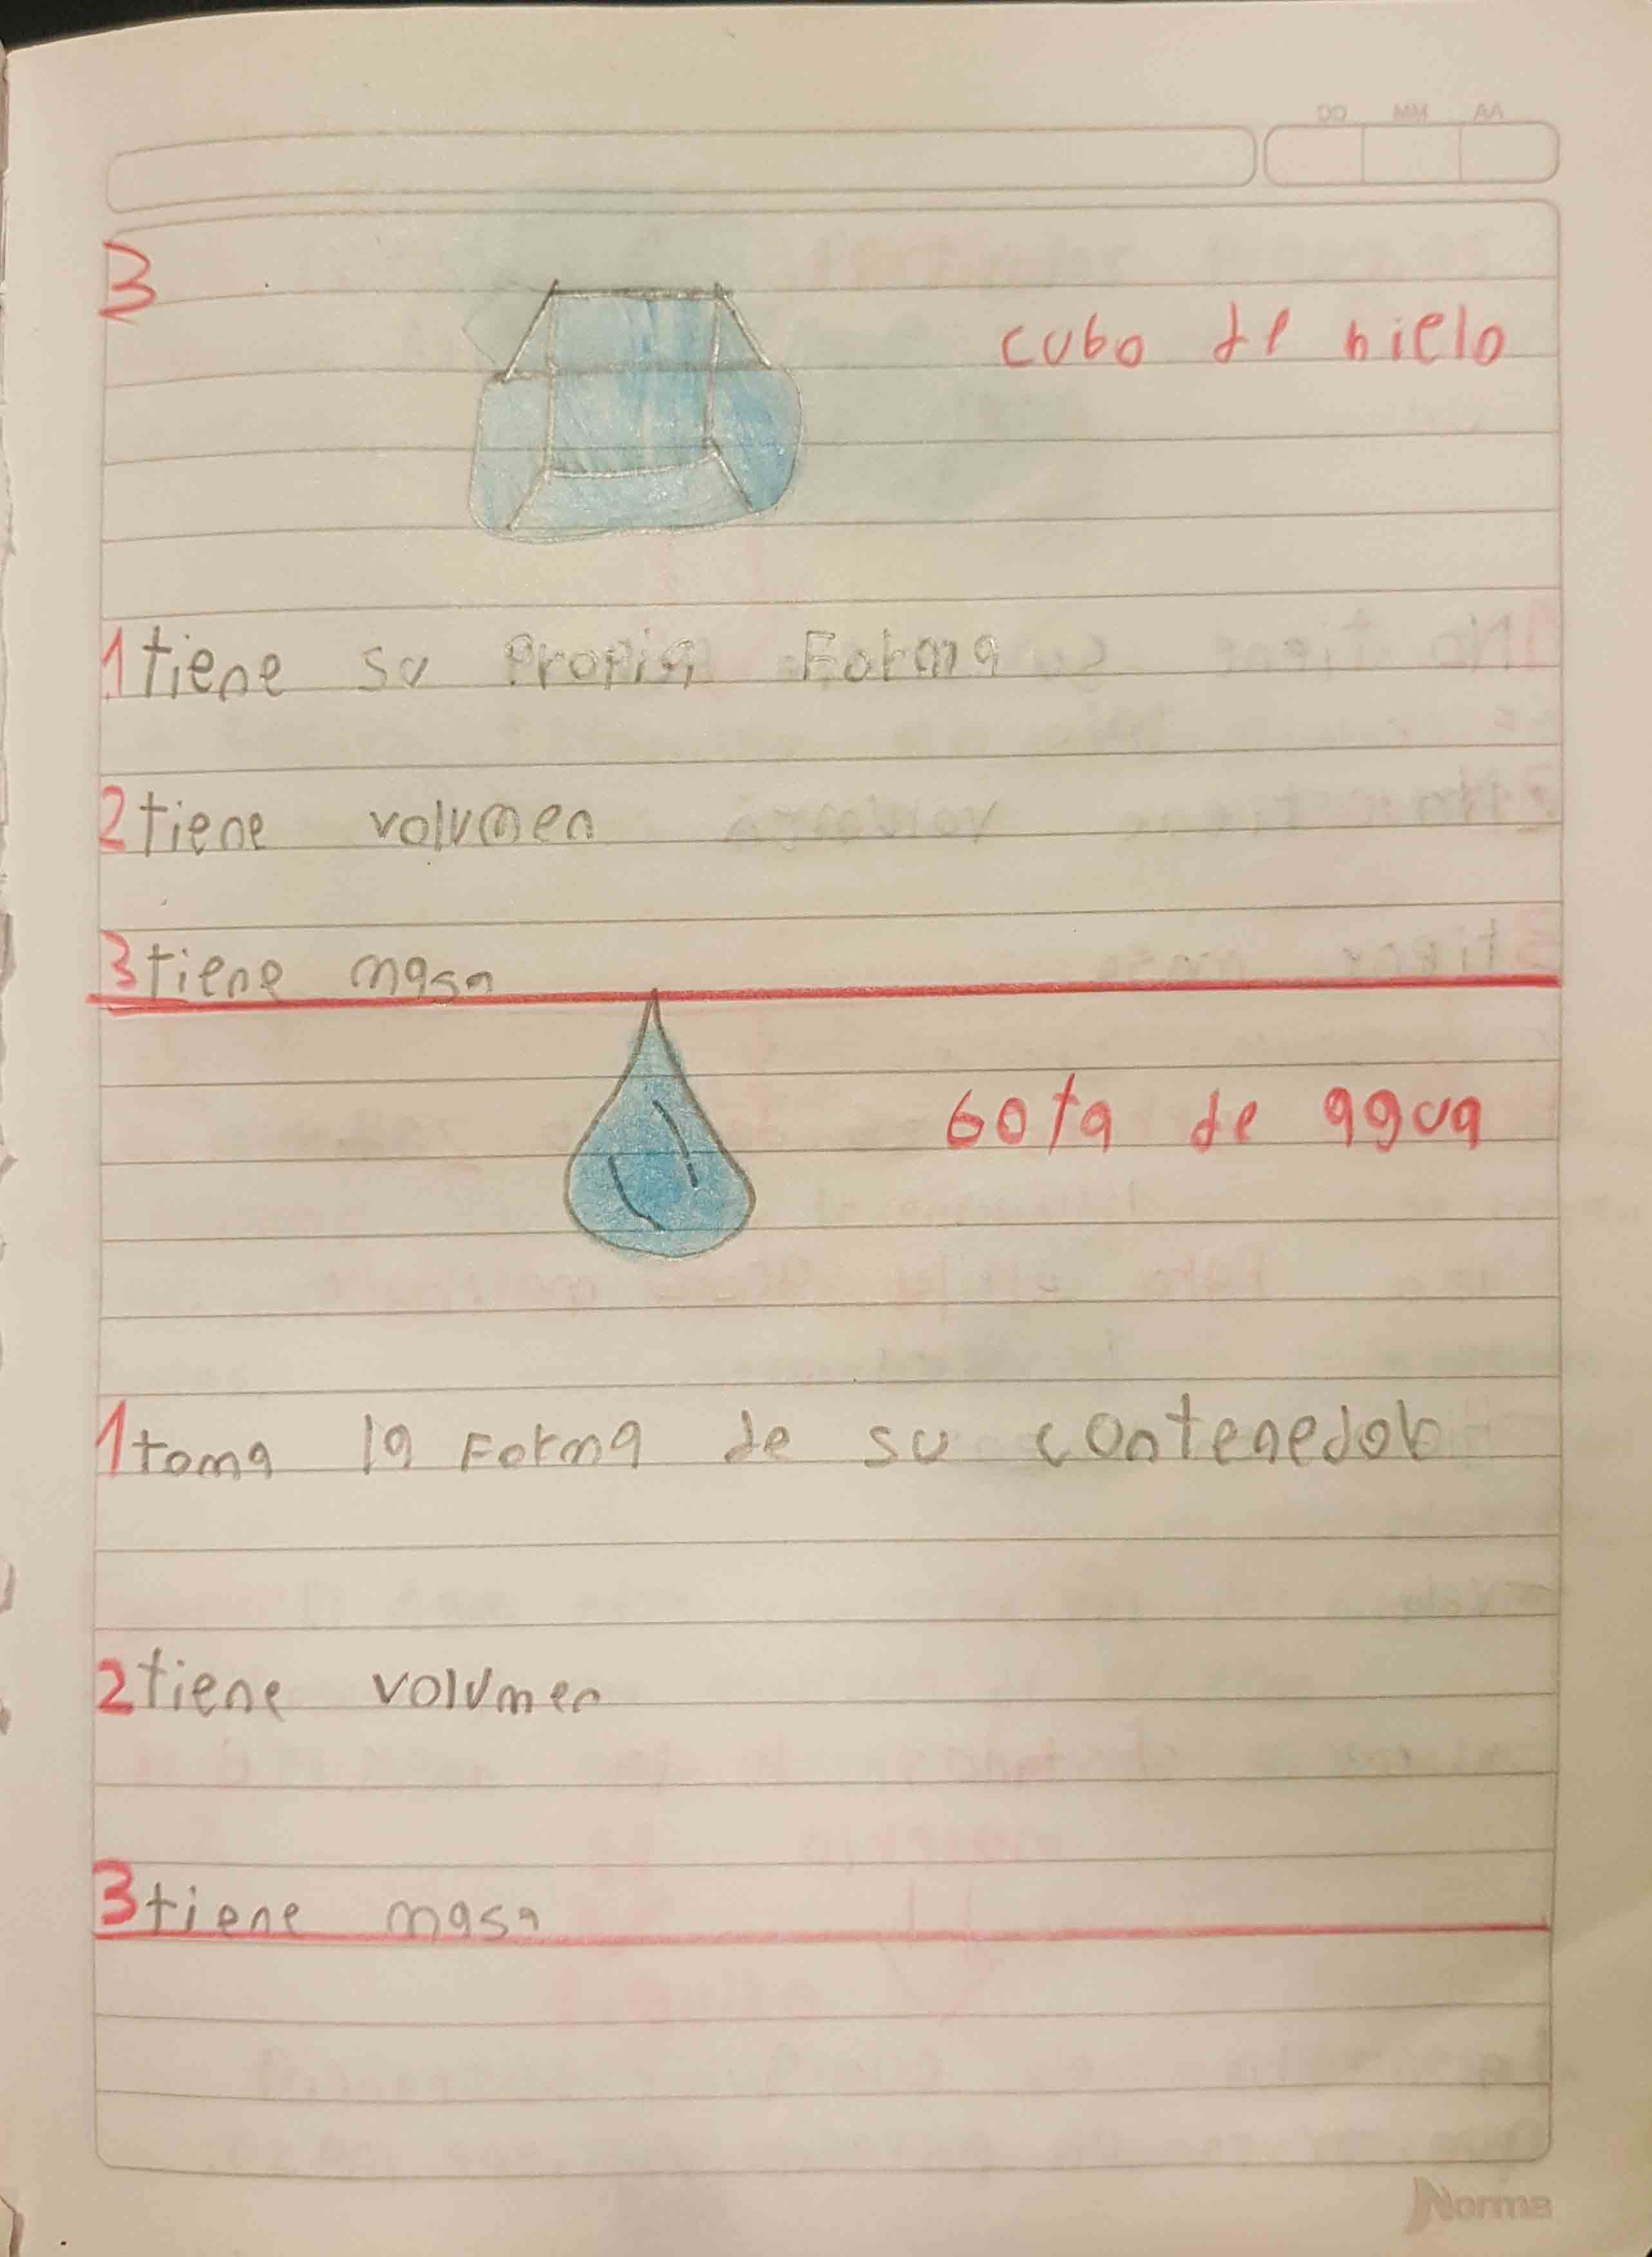 DD MM AA
3
cubo de hielo
1 tiene su Propia Forma
2 tiene volumen
3 tiene masa
Gota de agua
1 toma la Forma de su contenedor
2 tiene volumen
3 tiene masa
Norma